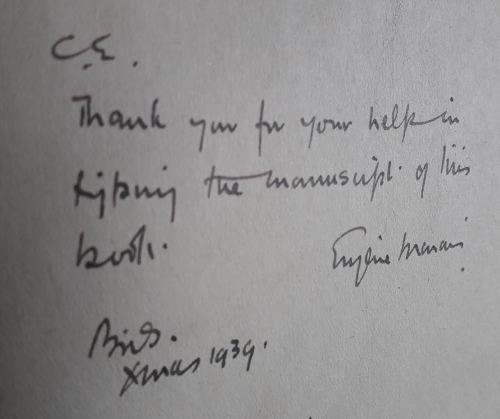 C.E.
Thank you for your help in
typing the manuscript. of this
book.
Eugène Marais
Xmas 1939.